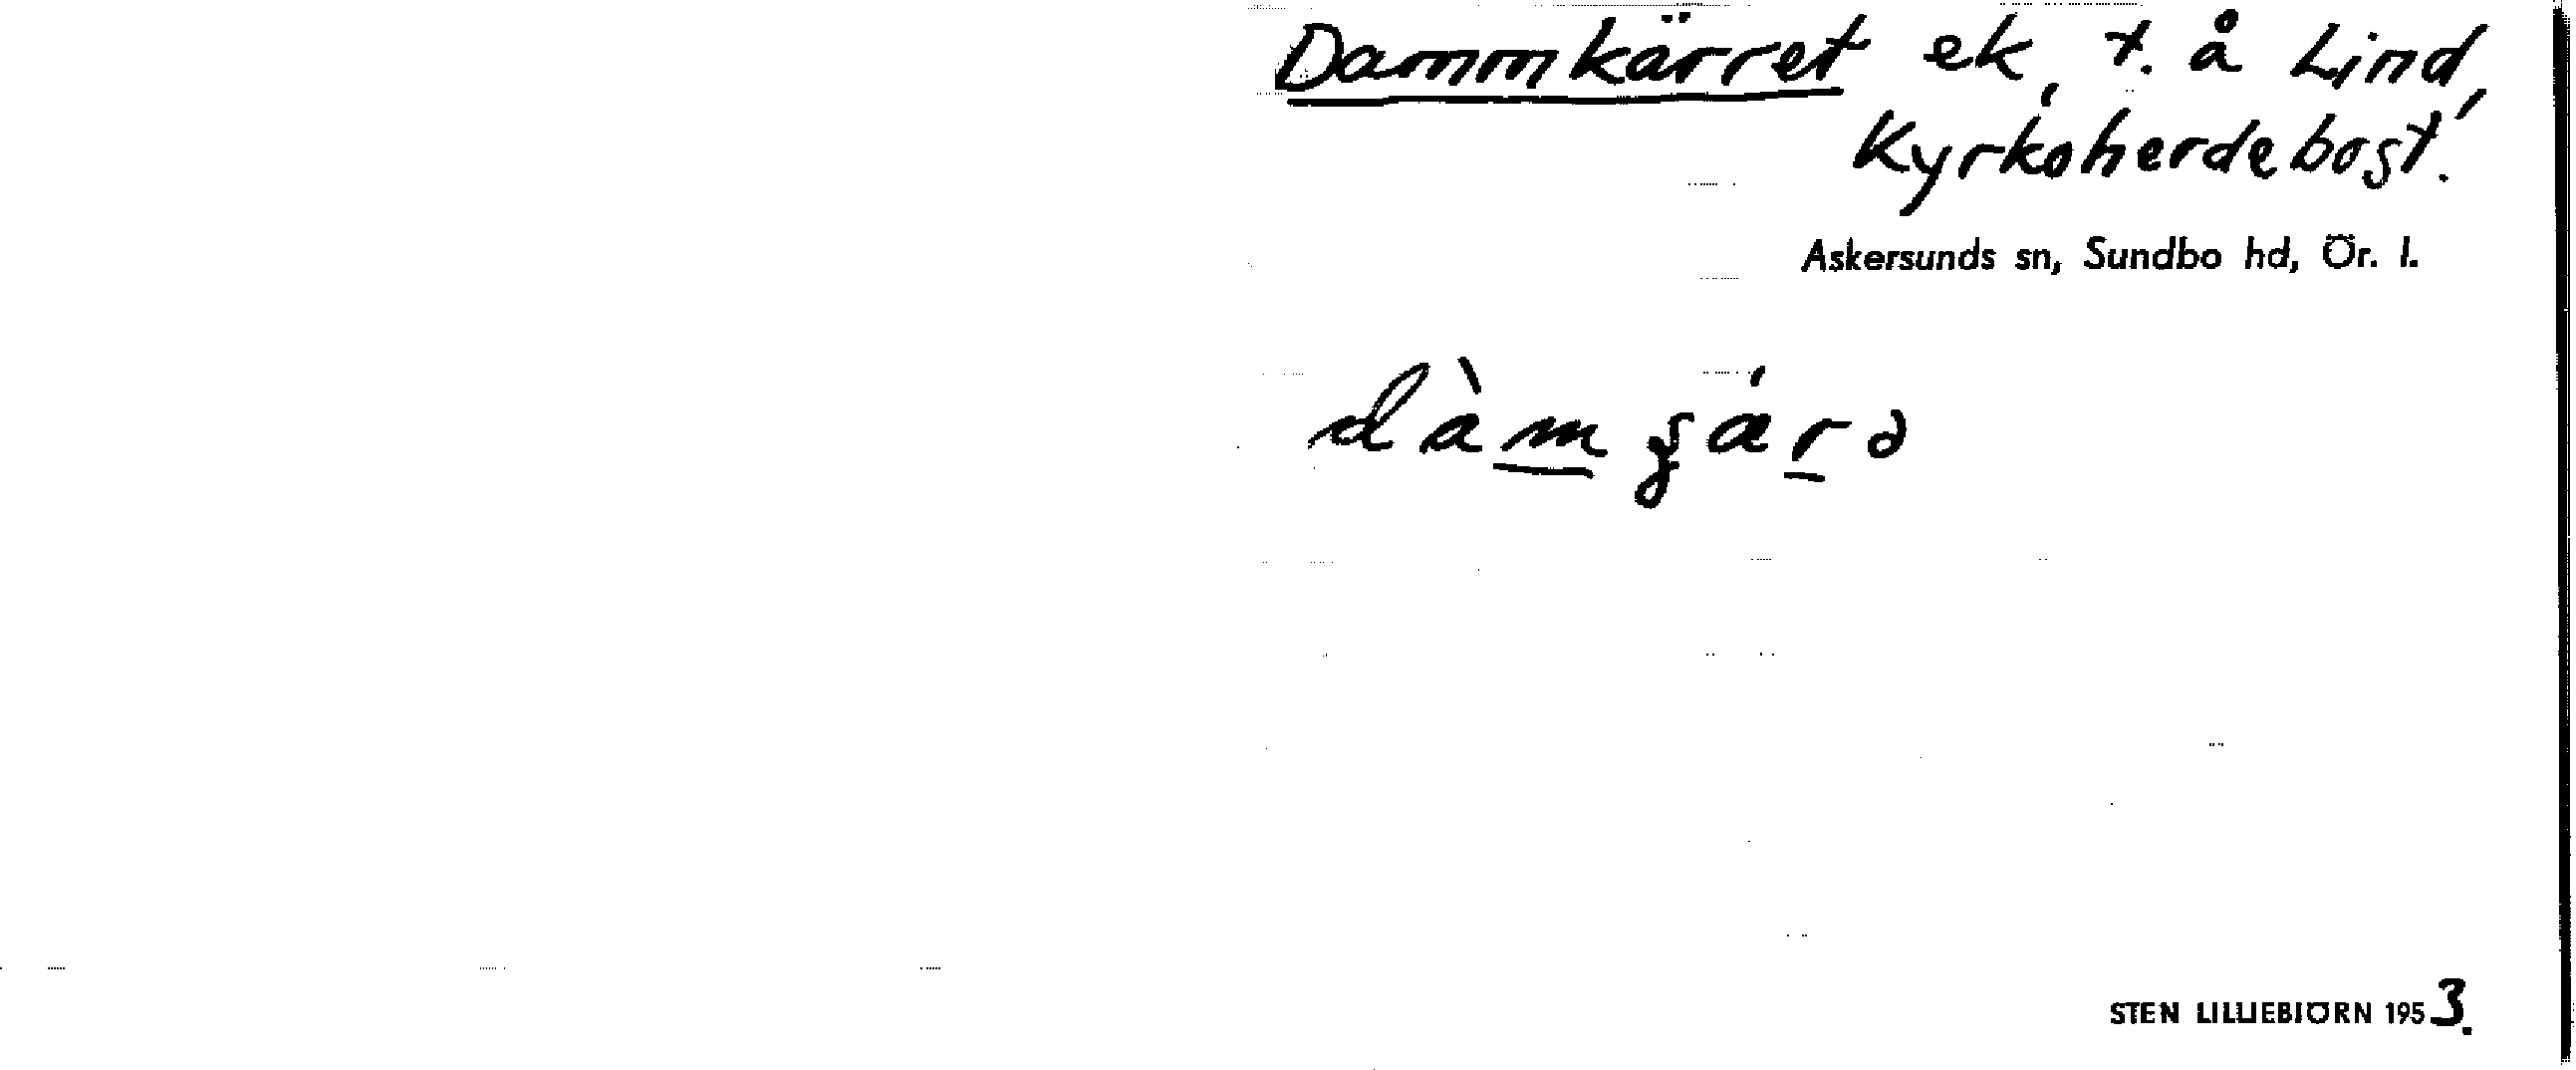 Dammkärret ek, t. å Lind,
Kyrkoherdebost.
Askersunds sn, Sundbo hd, Ör. l.
STEN LILLIEBIÖRN 1953.